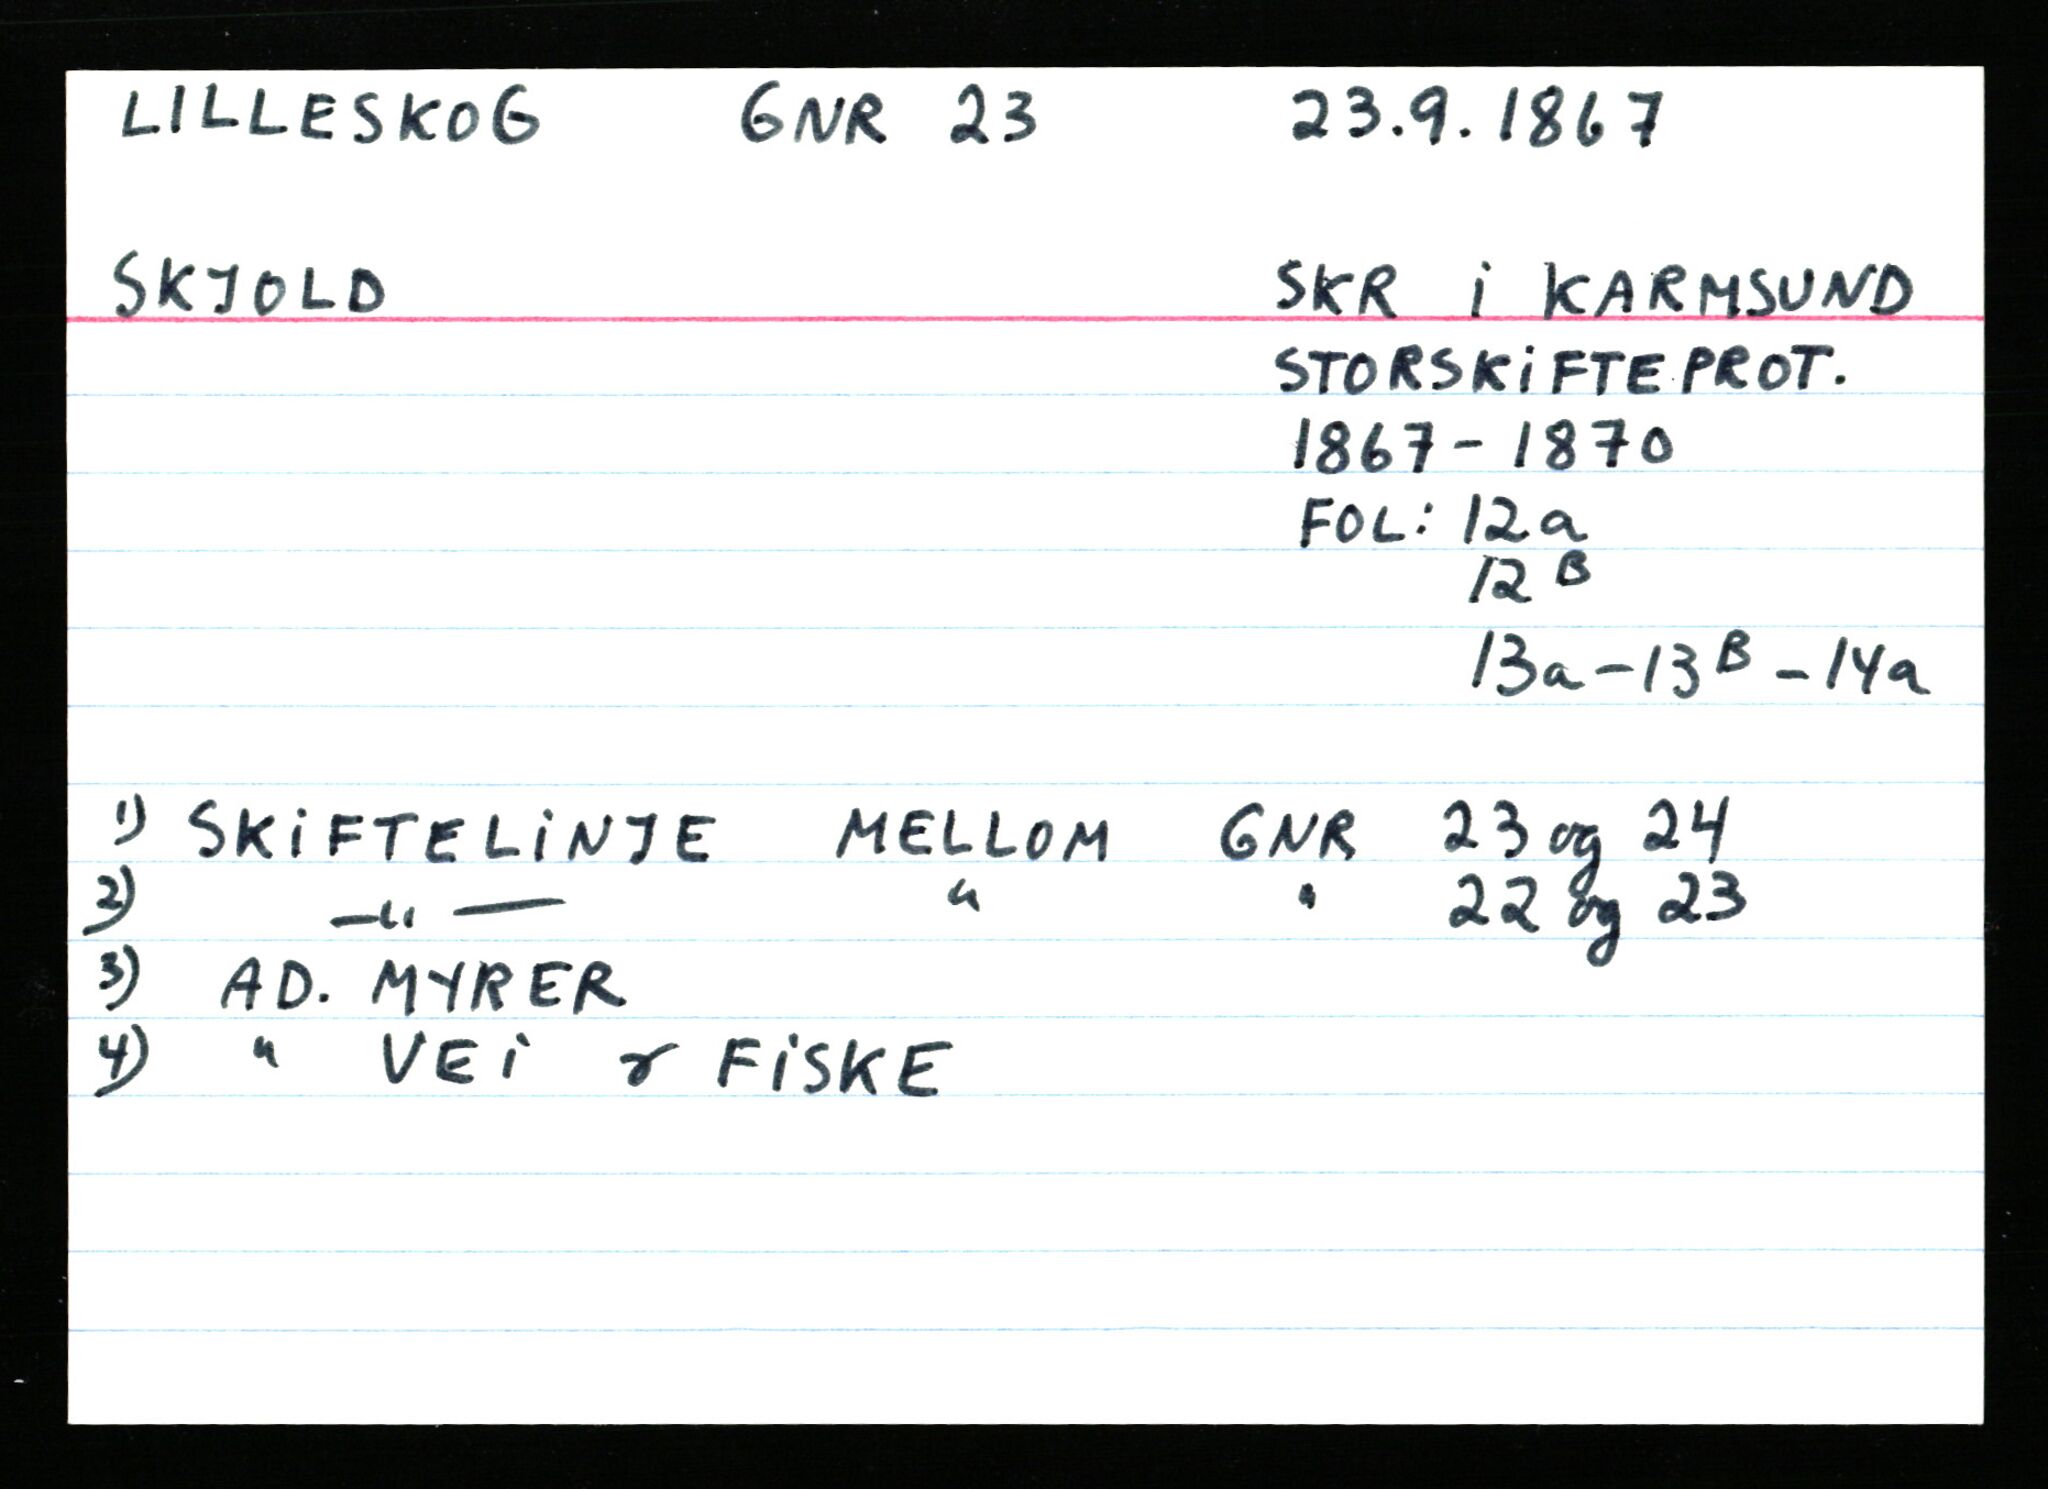 LILLESKOG GNR 23 23.9.1867
SKJOLD SKR i KARMSUND
STORSKiFTEPROT.
1867-1870
FOL: 12a
12B
13a-13B-14a
1) SKiFTELiNJE MELLOM GNR 23 og 24
2) —"— " " 22 og 23
3) AD. MYRER
4) " VEi r FiSKE